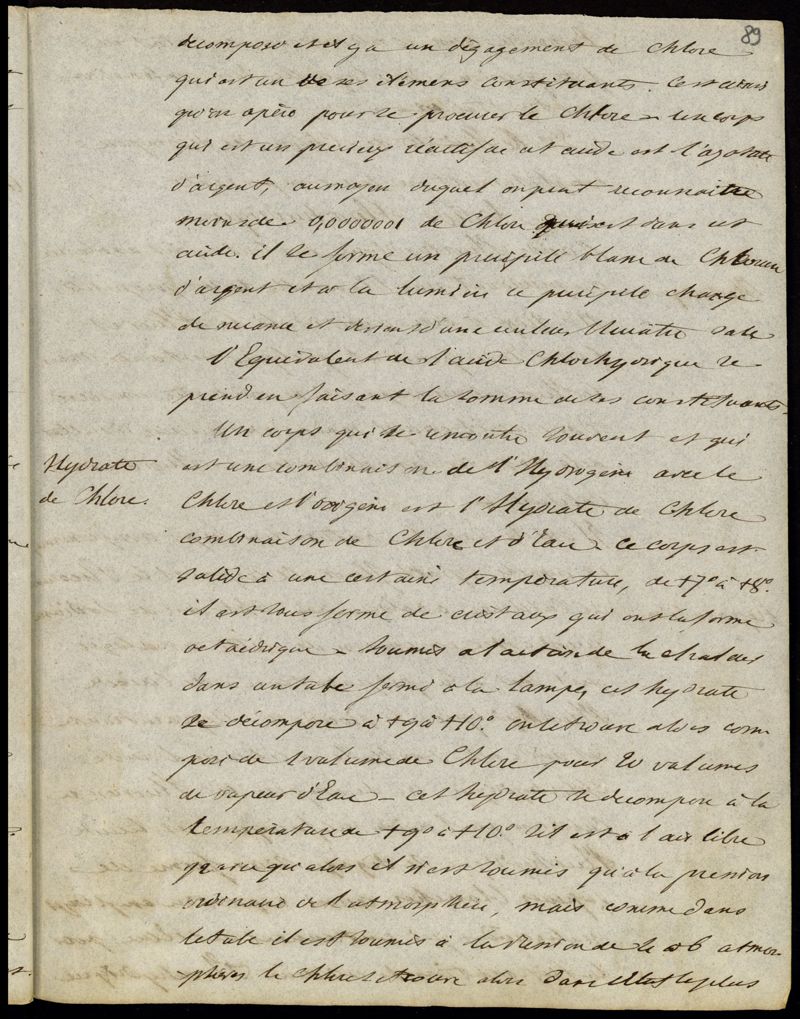 89
decompose et il y a un dégagement de Chlore
qui est un de ses élémens constituants. C'est ainsi
qu'on opère pour se procurer le Chlore – un corps
qui est un précieux réactif de cet acide est l'azotate
d'argent, au moyen duquel on peut reconnaitre
moins de 0,0000001 de Chlore qui est dans cet
acide. il se forme un précipité blanc de Chlorure
d'argent et à la lumière ce précipité change
de nuance et devient d'une couleur bleuâtre sale
l'Equivalent de l'acide Chlorhydrique se
prend en faisant la somme de ses constituants.
Un corps qui se rencontre souvent et qui
Hydrate
de Chlore.
est une combinaison de l'Hydrogène avec le
Chlore et l'oxigène est l'Hydrate de Chlore
combinaison de Chlore et d'Eau – ce corps est
solide à une certaine température, de +7° à +8°.
il est sous forme de cristaux qui ont la forme
octaédrique – soumis à l'action de la chaleur
dans un tube fermé à la lampe, cet hydrate
se décompose à +9 à +10°. on le trouve alors com-
posé de 1 volume de Chlore pour 20 volumes
de vapeur d'Eau – cet hydrate se decompose à la
température de +9° à +10°. s'il est à l'air libre
parce qu'alors il n'est soumis qu'à la pression
ordinaire de l'atmosphère, mais comme dans
le tube il est soumis à la pression de 5 à 6 atmos-
phères le chlore se trouve alors dans l'état le plus